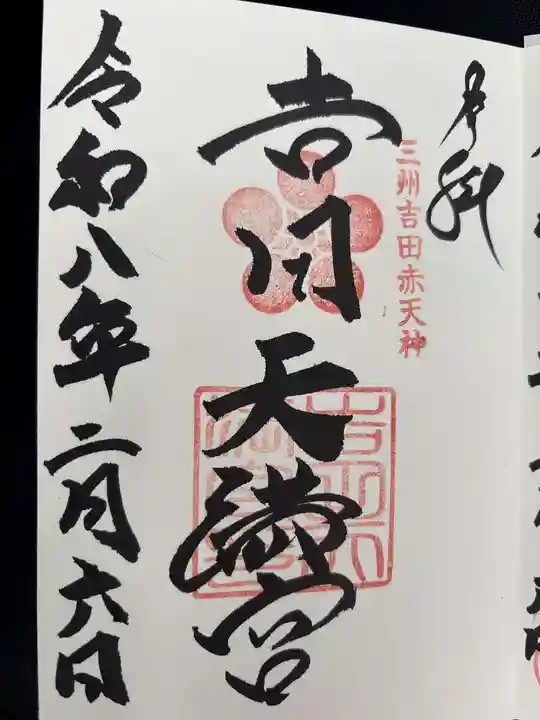 奉拝
三州吉田赤天神
吉田天満宮
令和八年二月六日